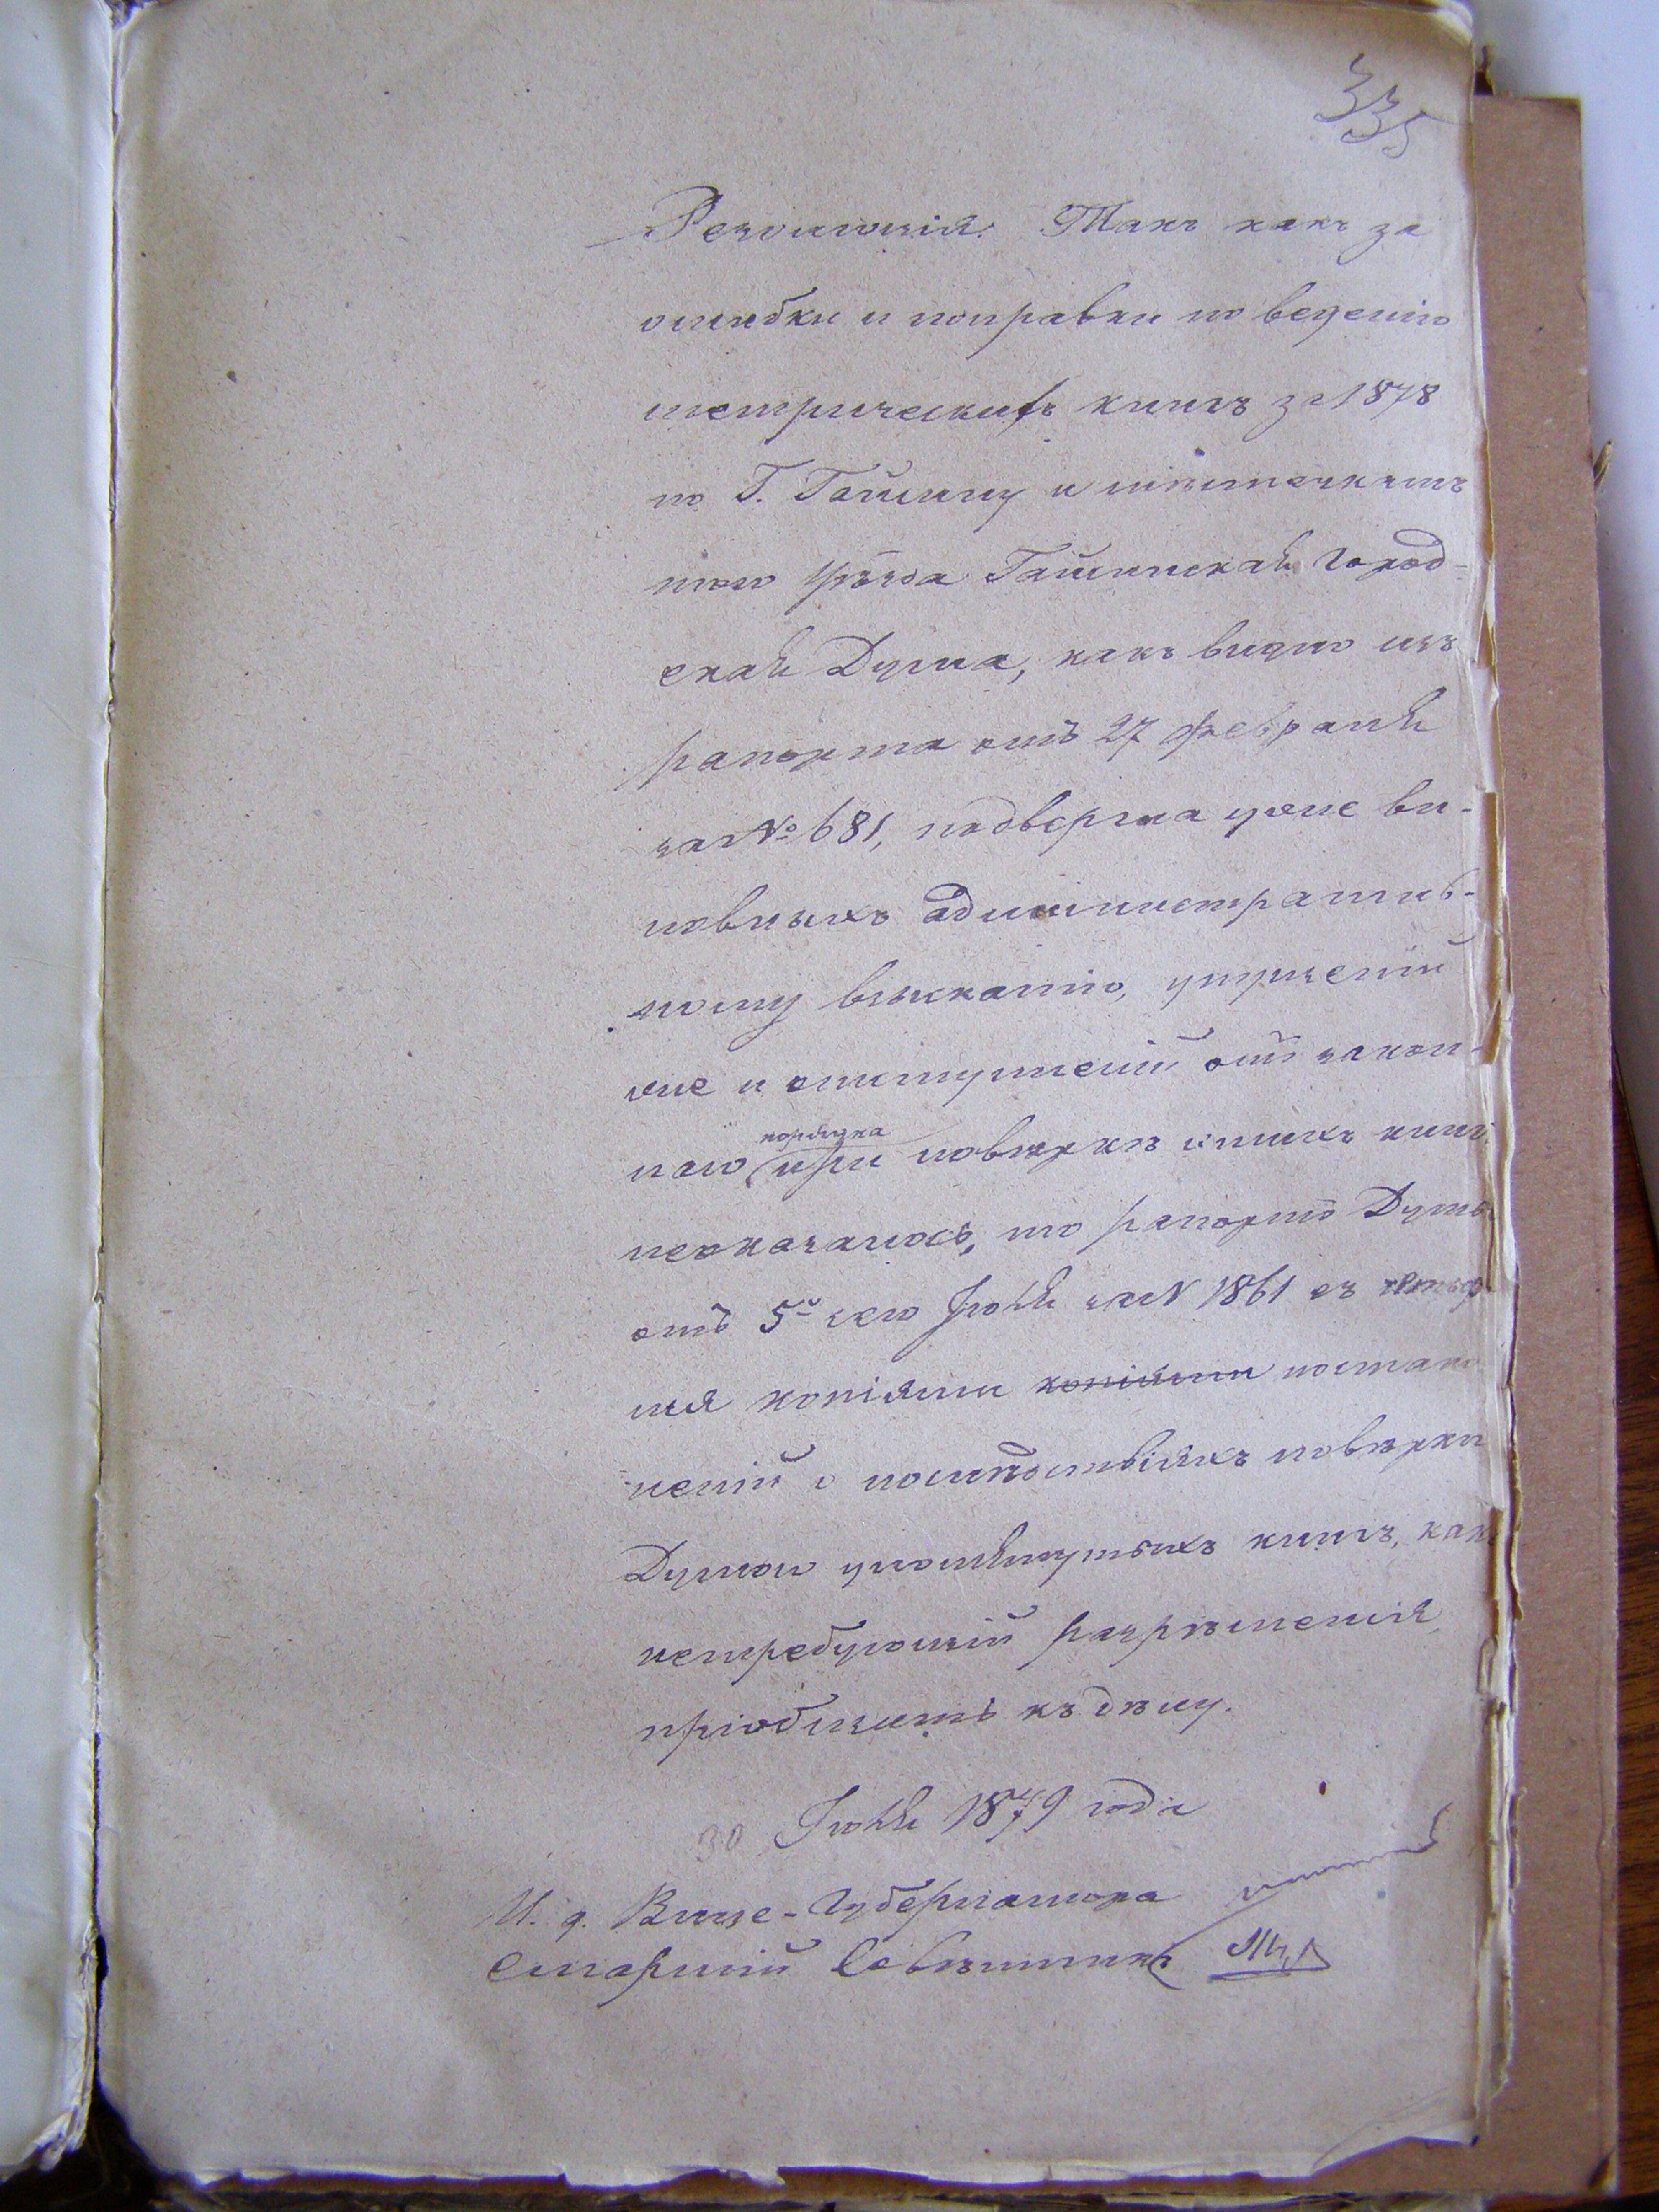 335
Резолюція. Такъ какъ за
ошибки и поправки по веденію
метрическихъ книгъ за 1878
по Г. Гайсину и мѣстечкамъ
того уѣзда Гайсинская Город-
ская Дума, какъ видно изъ
рапорта отъ 27 февраля
за № 681, подвергла уже ви-
новныхъ административ-
ному взысканію, упущеній
же и отступленій отъ закон-
наго порядка при повѣркѣ этихъ книгъ
неоказалось, то рапортъ Думы
отъ 5го сего Іюля за N 1861 съ
мя копіями копіями постано
неній о послѣдствіяхъ повѣрки
Думою упомянутыхъ книгъ, какъ
нетребующій разрѣшенія,
пріобщить къ дѣлу.
30 Іюля 1879 года
И. д. Вице-Губернатора
Старшій Совѣтникъ